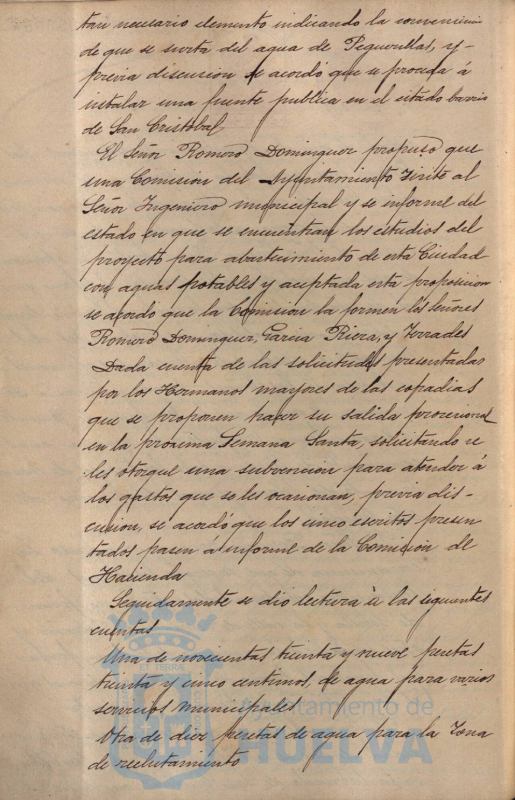 tan necesario elemento indicando la convenienci
de que se surta del agua de Peguerillas, y
previa discusion se acordó que se proceda á
instalar una fuente publica en el citado barrio
de San Cristobal
El Señor Romero Dominguez propuso que
una Comision del Ayuntamiento visite al
Señor Ingeniero municipal y se informe del
estado en que se encuentran los estudios del
proyecto para abastecimiento de esta Ciudad
con aguas potables y aceptada esta proposicion
se acordó que la Comision la formen los señores
Romero Dominguez, Garcia Riera, y Terrades
Dada cuenta de las solicitudes presentadas
por los Hermanos mayores de las cofradias
que se proponen hacer su salida procesional
en la proxima Semana Santa, solicitando se
les otorgue una subvencion para atender á
los gastos que se les ocasionan, previa dis-
cusion, se acordó que los cinco escritos presen
tados pasen á informe de la Comision de
Hacienda
Seguidamente se dio lectura á las siguientes
cuentas
Una de novecientas treinta y nueve pesetas
treinta y cinco centimos, de agua para varios
servicios municipales
Otra de diez pesetas de agua para la Zona
de reclutamiento
Ayuntamiento de
HUELVA